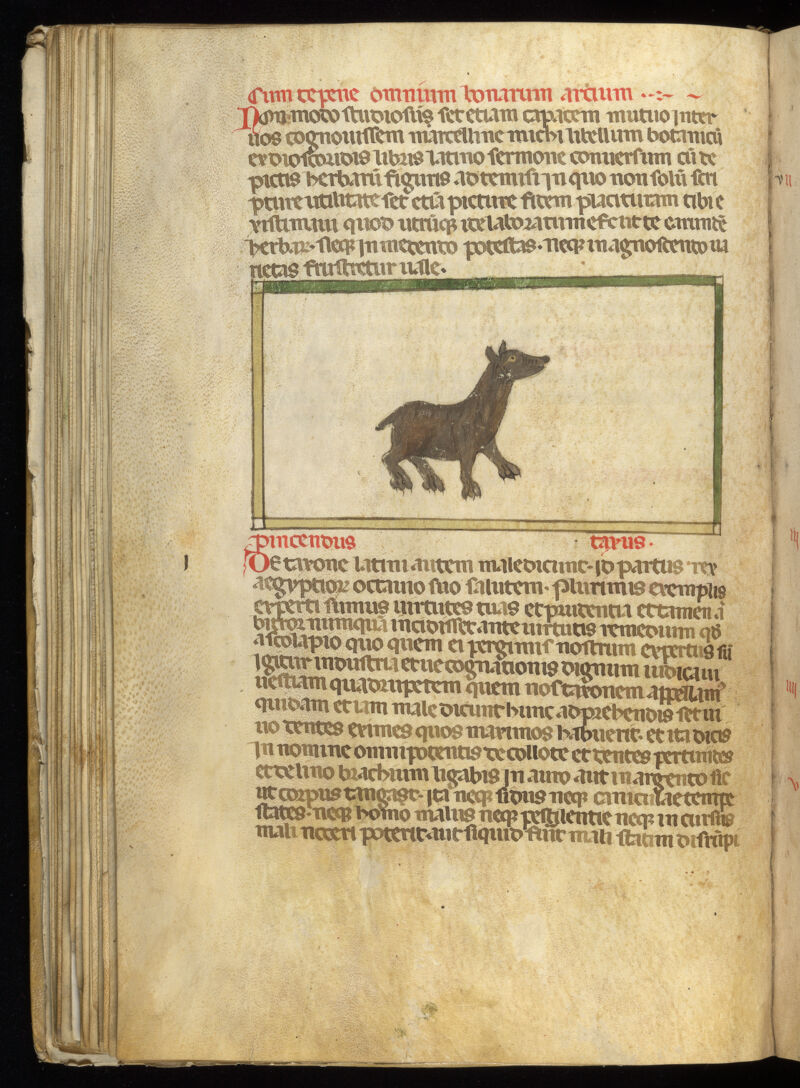 Cum te pene omnium bonarum artium
Non modo studiosuӡ set etiam capacem mutuo inter
nos cognouissem marcelline michi libellum botanicū
ex dioscoridis libris latino sermone conuersum cū de
pictis herbarū figuris ad te misi in quo non solū scri
pture utilitate set etiā picture fidem placituram tibi e
xistimaui quod utrūqꝫ ita elaboratum est ut te
herbar neqꝫ in metendo potestas neqꝫ in agnoscendo ua
rietas frustretur ualle.
pincendus taxus.
De taxone latini autem maledicunt. id partus rex
aegyptioꝝ octauio suo salutem. Plurimis exemplis
experti sumus uirtutes tuas et prudentia et tamen
numquā incidisset ante uirtutis remedium qđ
ascolapio quo quem ei pergimus nostrum expertus sū
igitur industria et ue cognationis dignum iudicaui
uestiam quadrupetem quem nos taxonem appellam
quidam etiam male dicunt hunc adprehendis set ui
uo dentes eximes quos maximos habuerit. et ita dicis
In nomine omnipotentis decollo te et dentes
et de lino brachium ligabis in auro aut in argento sic
ut corpus tangast. ita neqꝫ sidus neqꝫ caniculae tempe
states. neqꝫ homo malus neqꝫ pestilentie neqꝫ incursus
mali noceri poterit. aut siquid fuit mali statim disrūpi